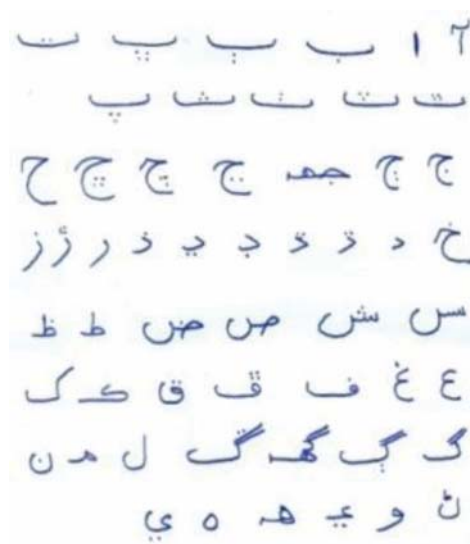 آ ا ب ٻ ڀ ت
ٿ ٽ ٺ ث پ
ج ڄ جھ ڃ چ ڇ ح
خ د ڌ ڏ ڊ ڍ ذ ر ڙ ز
س ش ص ض ط ظ
ع غ ف ڦ ق ڪ ک
گ ڳ گھ ڱ ل م ن
ڻ و ھ ه ي